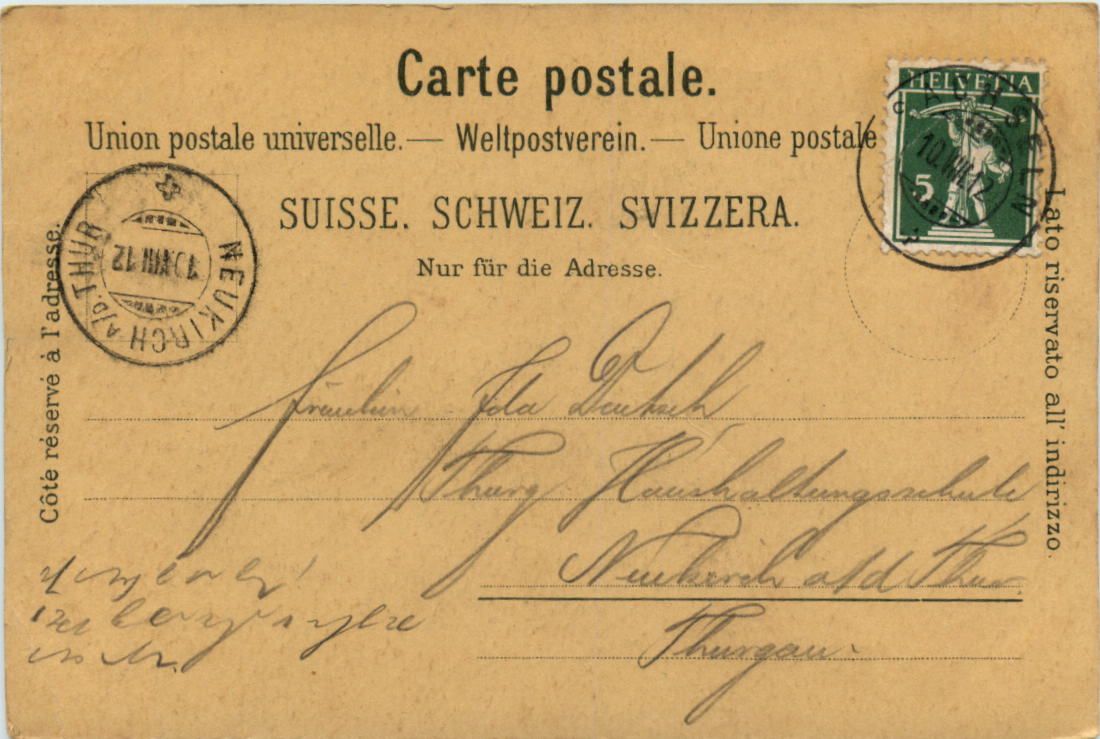 Carte postale.
Union postale universelle. — Weltpostverein. — Unione postale
SUISSE. SCHWEIZ. SVIZZERA.
Nur für die Adresse.
HELVETIA
5
SACHSELN
10.VIII.12
NEUKIRCH a/d. THUR
10.VIII.12
Côté réservé à l'adresse.
Lato riservato all' indirizzo.
Fräulein Ida Deutsch
Thurg. Haushaltungsschule
Neukirch a/d Thur.
Thurgau.